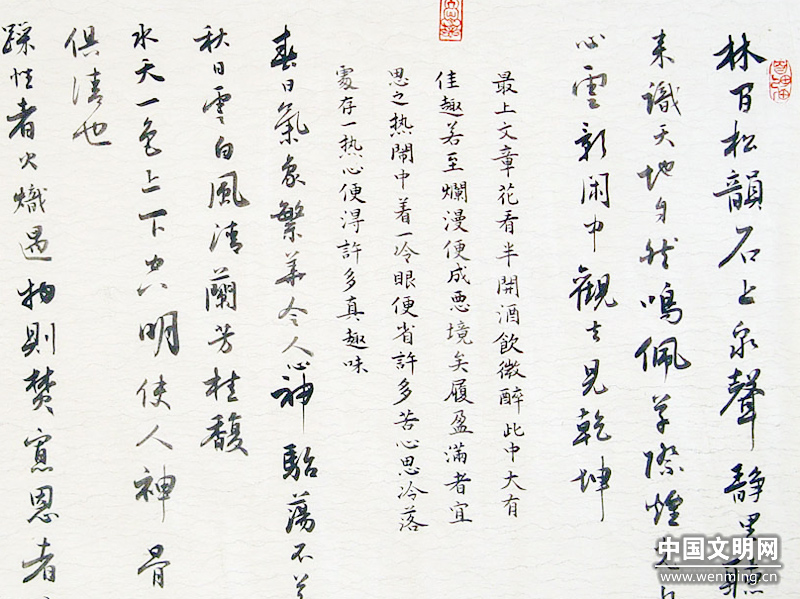 林間松韻石上泉聲靜里聽
来識天地自然鳴佩草際煙光
心雲影闲中觀去見乾坤
最上文章花看半開酒飲微醉此中大有
佳趣若至爛漫便成悪境矣履盈滿者宜
思之热鬧中着一冷眼便省許多苦心思冷落
處存一热心便得許多真趣味
春日氣象繁華令人心神駘蕩不若
秋日雲白風清蘭芳桂馥
水天一色上下空明使人神骨
俱清也
躁性者火熾遇物則焚寡恩者
中国文明网
www.wenming.cn